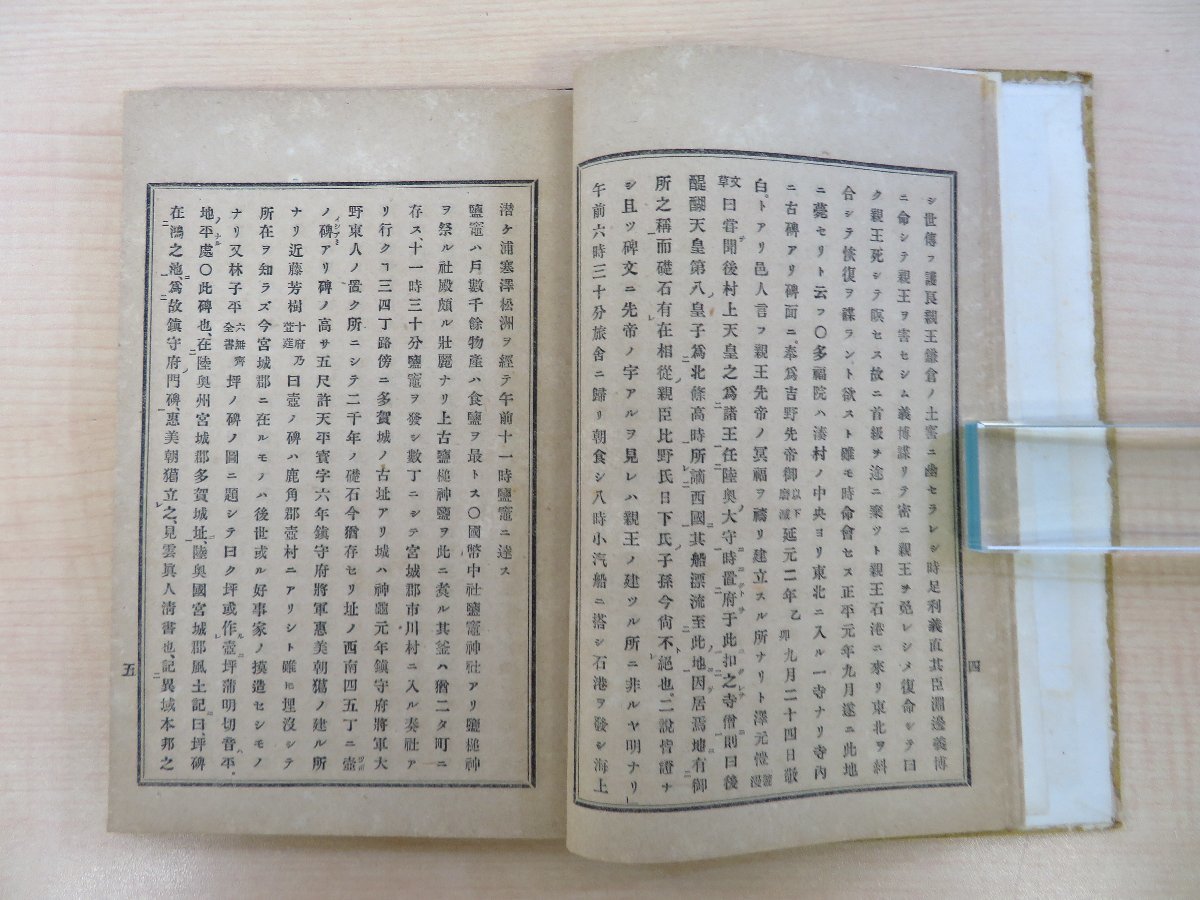 シ世傳フ護良親王鎌倉ノ土窖ニ幽セラレシ時足利義直其臣淵邊義博
ニ命シテ親王ヲ害セシム義博謀リテ密ニ親王ヲ免レシメ復命シテ曰
ク親王死シテ瞑セス故ニ首級ヲ途ニ棄ツト親王石港ニ來リ東北ヲ糾
合シテ恢復ヲ謀ラント欲スト雖モ時命會セス正平元年九月遂ニ此地
ニ薨セリト云フ〇多福院ハ湊村ノ中央ヨリ東北ニ入ル一寺ナリ寺內
ニ古碑アリ碑面ニ奉爲吉野先帝御以下磨滅延元二年乙卯九月二十四日敬
白トアリ邑人言フ親王先帝ノ冥福ヲ禱リ建立スル所ナリト澤元愷漫遊
文草曰嘗聞後村上天皇之爲諸王任陸奥大守時置府于此扣之寺僧則曰後
醍醐天皇第八皇子爲北條高時所謫西國其船漂流至此地因居焉地有御
所之稱而礎石有在相從親臣比野氏日下氏子孫今尙不絕也二說皆證ナ
シ且ツ碑文ニ先帝ノ字アルヲ見レハ親王ノ建ツル所ニ非ルヤ明ナリ
午前六時三十分旅舍ニ歸リ朝食シ八時小汽船ニ搭シ石港ヲ發シ海上
四
潜ケ浦寒澤松洲ヲ經テ午前十一時鹽竈ニ達ス
鹽竈ハ戶數千餘物產ハ食鹽ヲ最トス〇國幣中社鹽竈神社アリ鹽槌神
ヲ祭ル社殿頗ル壯麗ナリ上古鹽槌神鹽ヲ此ニ煑ル其釜ハ猶二タ町ニ
存ス、十一時三十分鹽竈ヲ發シ數丁ニシテ宮城郡市川村ニ入ル奏社ア
リ行クヿ三四丁路傍ニ多賀城ノ古址アリ城ハ神龜元年鎭守府將軍大
野東人ノ置ク所ニシテ二千年ノ礎石今猶存セリ址ノ西南四五丁ニ壺
ノ碑アリ碑ノ高サ五尺許天平寳字六年鎭守府將軍惠美朝獦ノ建ル所
ナリ近藤芳樹十府乃菅薦曰壺ノ碑ハ鹿角郡壺村ニアリシト雖𪜈埋沒シテ
所在ヲ知ラズ今宮城郡ニ在ルモノハ後世或ル好事家ノ摸造セシモノ
ナリ又林子平六無齊全書坪ノ碑ノ圖ニ題シテ曰ク坪或作壺坪蒲明切音平
地平處〇此碑也、在陸奥州宮城郡多賀城址、陸奥國宮城郡風土記曰、坪碑
在鴻之池、爲故鎭守府門碑、惠美朝獦立之、見雲眞人淸書也、記異域本邦之
五